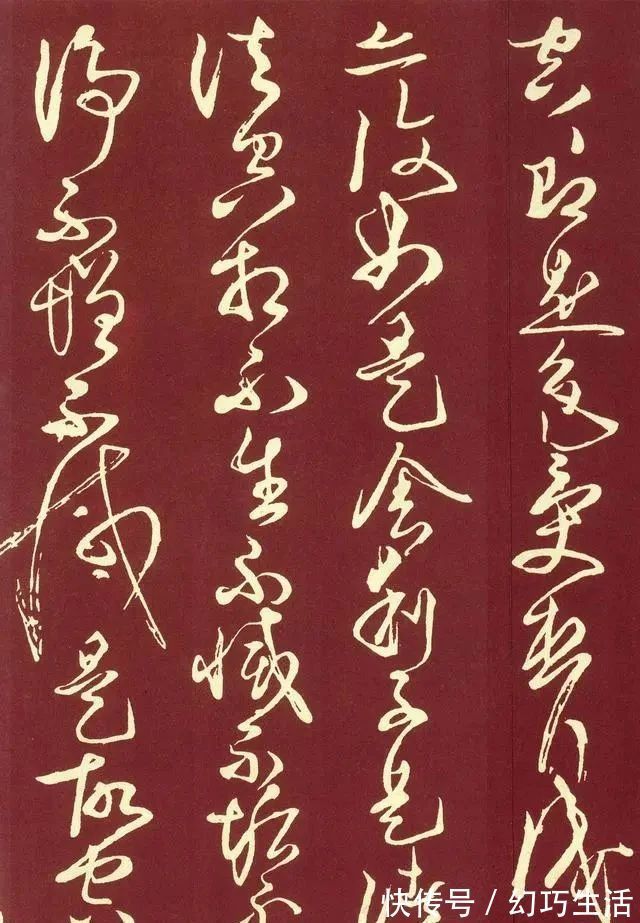 空即是色受想行识
亦复如是舍利子是法
诸空相不生不灭不垢不
净不增不减是故空
快传号/幻巧生活